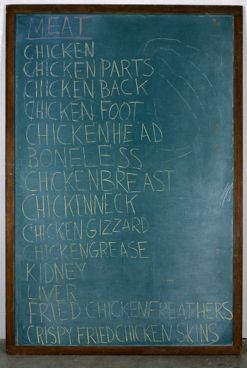 MEAT
CHICKEN
CHICKEN PARTS
CHICKEN BACK
CHICKEN FOOT
CHICKEN HEAD
BONELESS
CHICKEN BREAST
CHICKEN NECK
CHICKEN GIZZARD
CHICKEN GREASE
KIDNEY
LIVER
FRIED CHICKEN FREATHERS
CRISPY FRIED CHICKEN SKINS